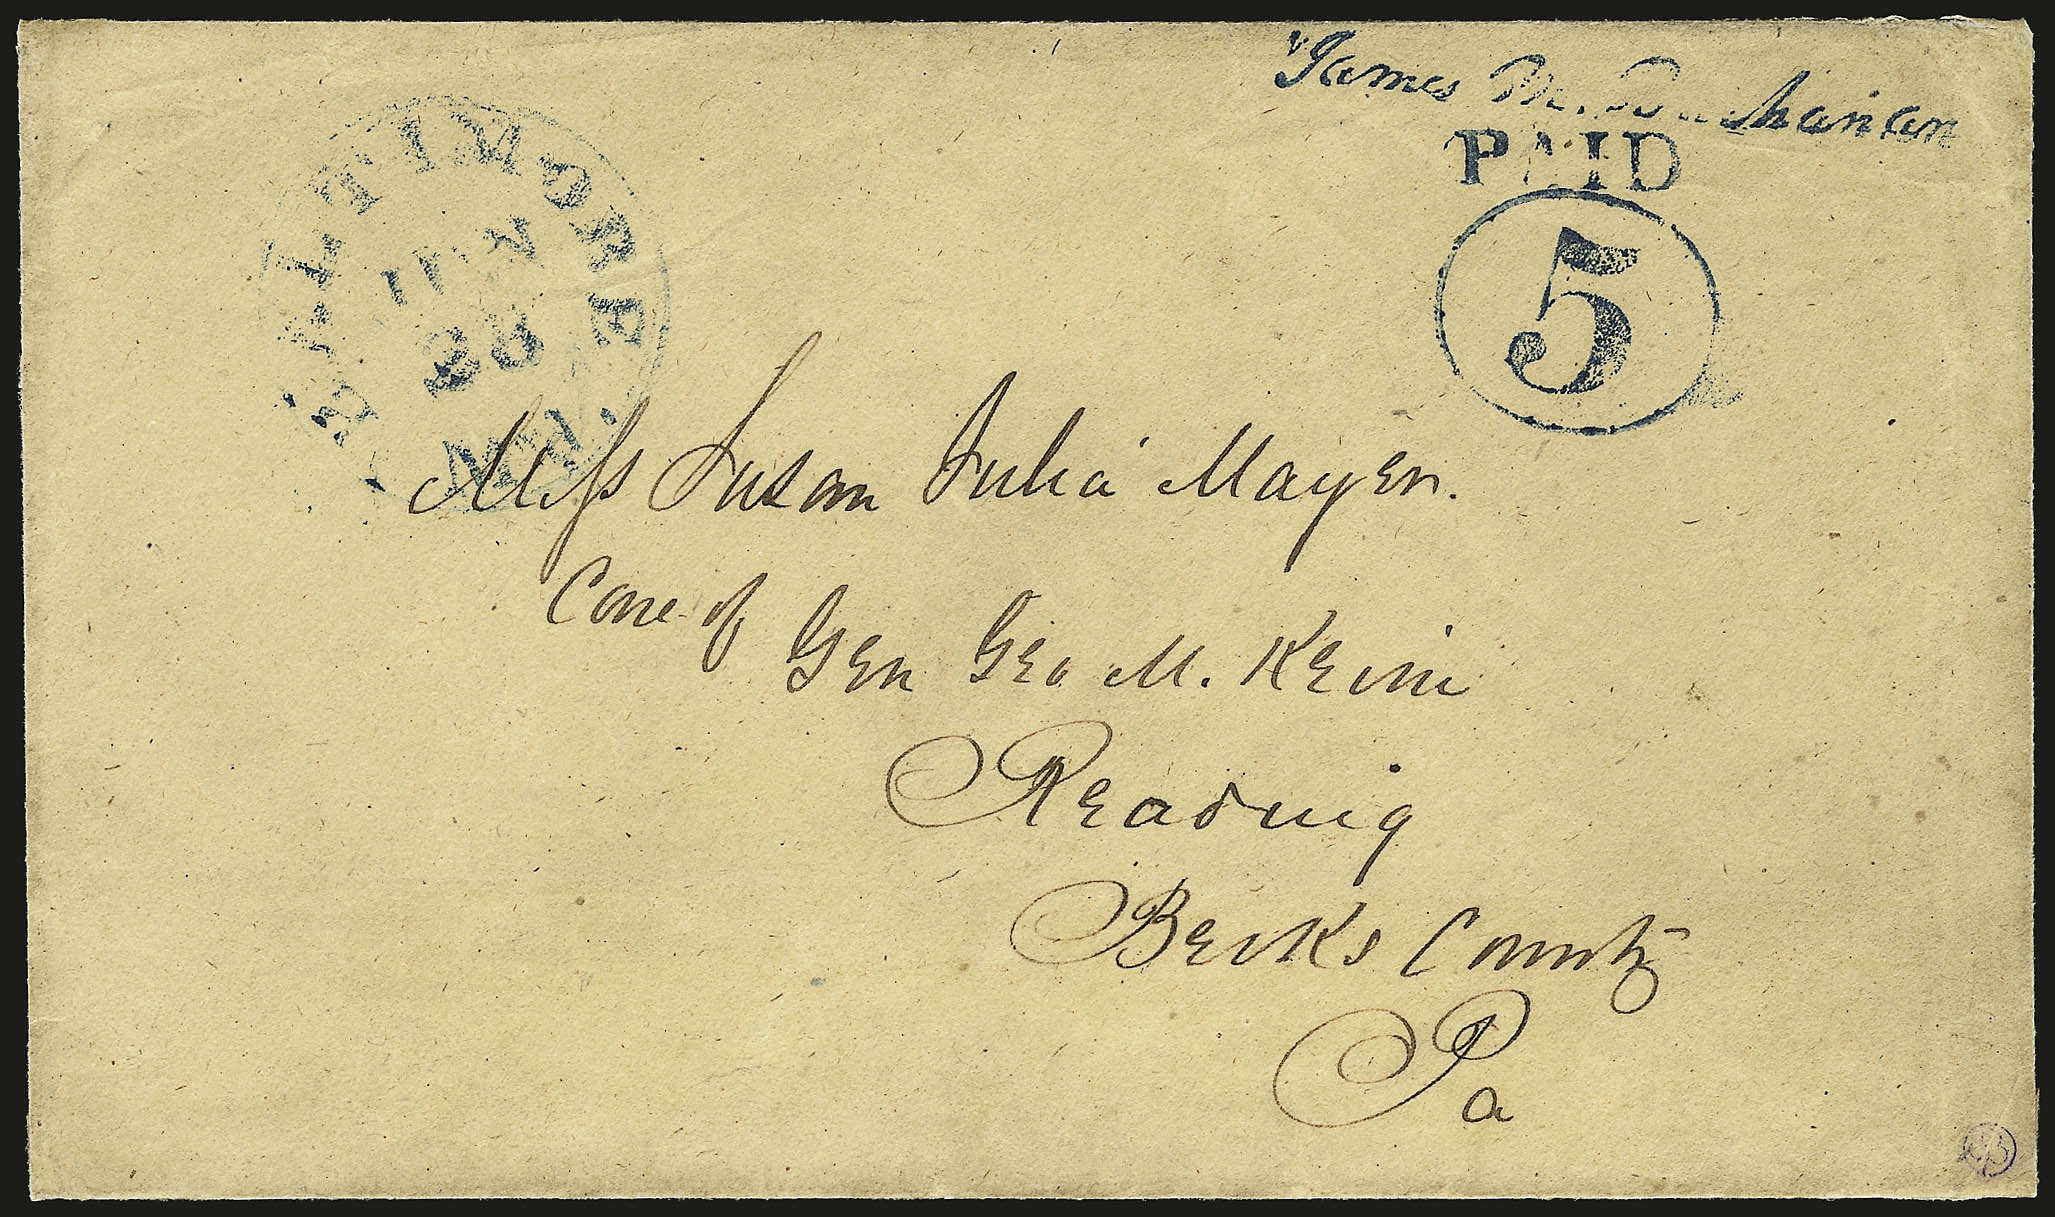 James M. Buchanan
PAID
5
BALTIMORE
Md.
Miss Susan Julia Mayer.
Care of
Gen Geo M. Keim
Reading
Berks County
Pa